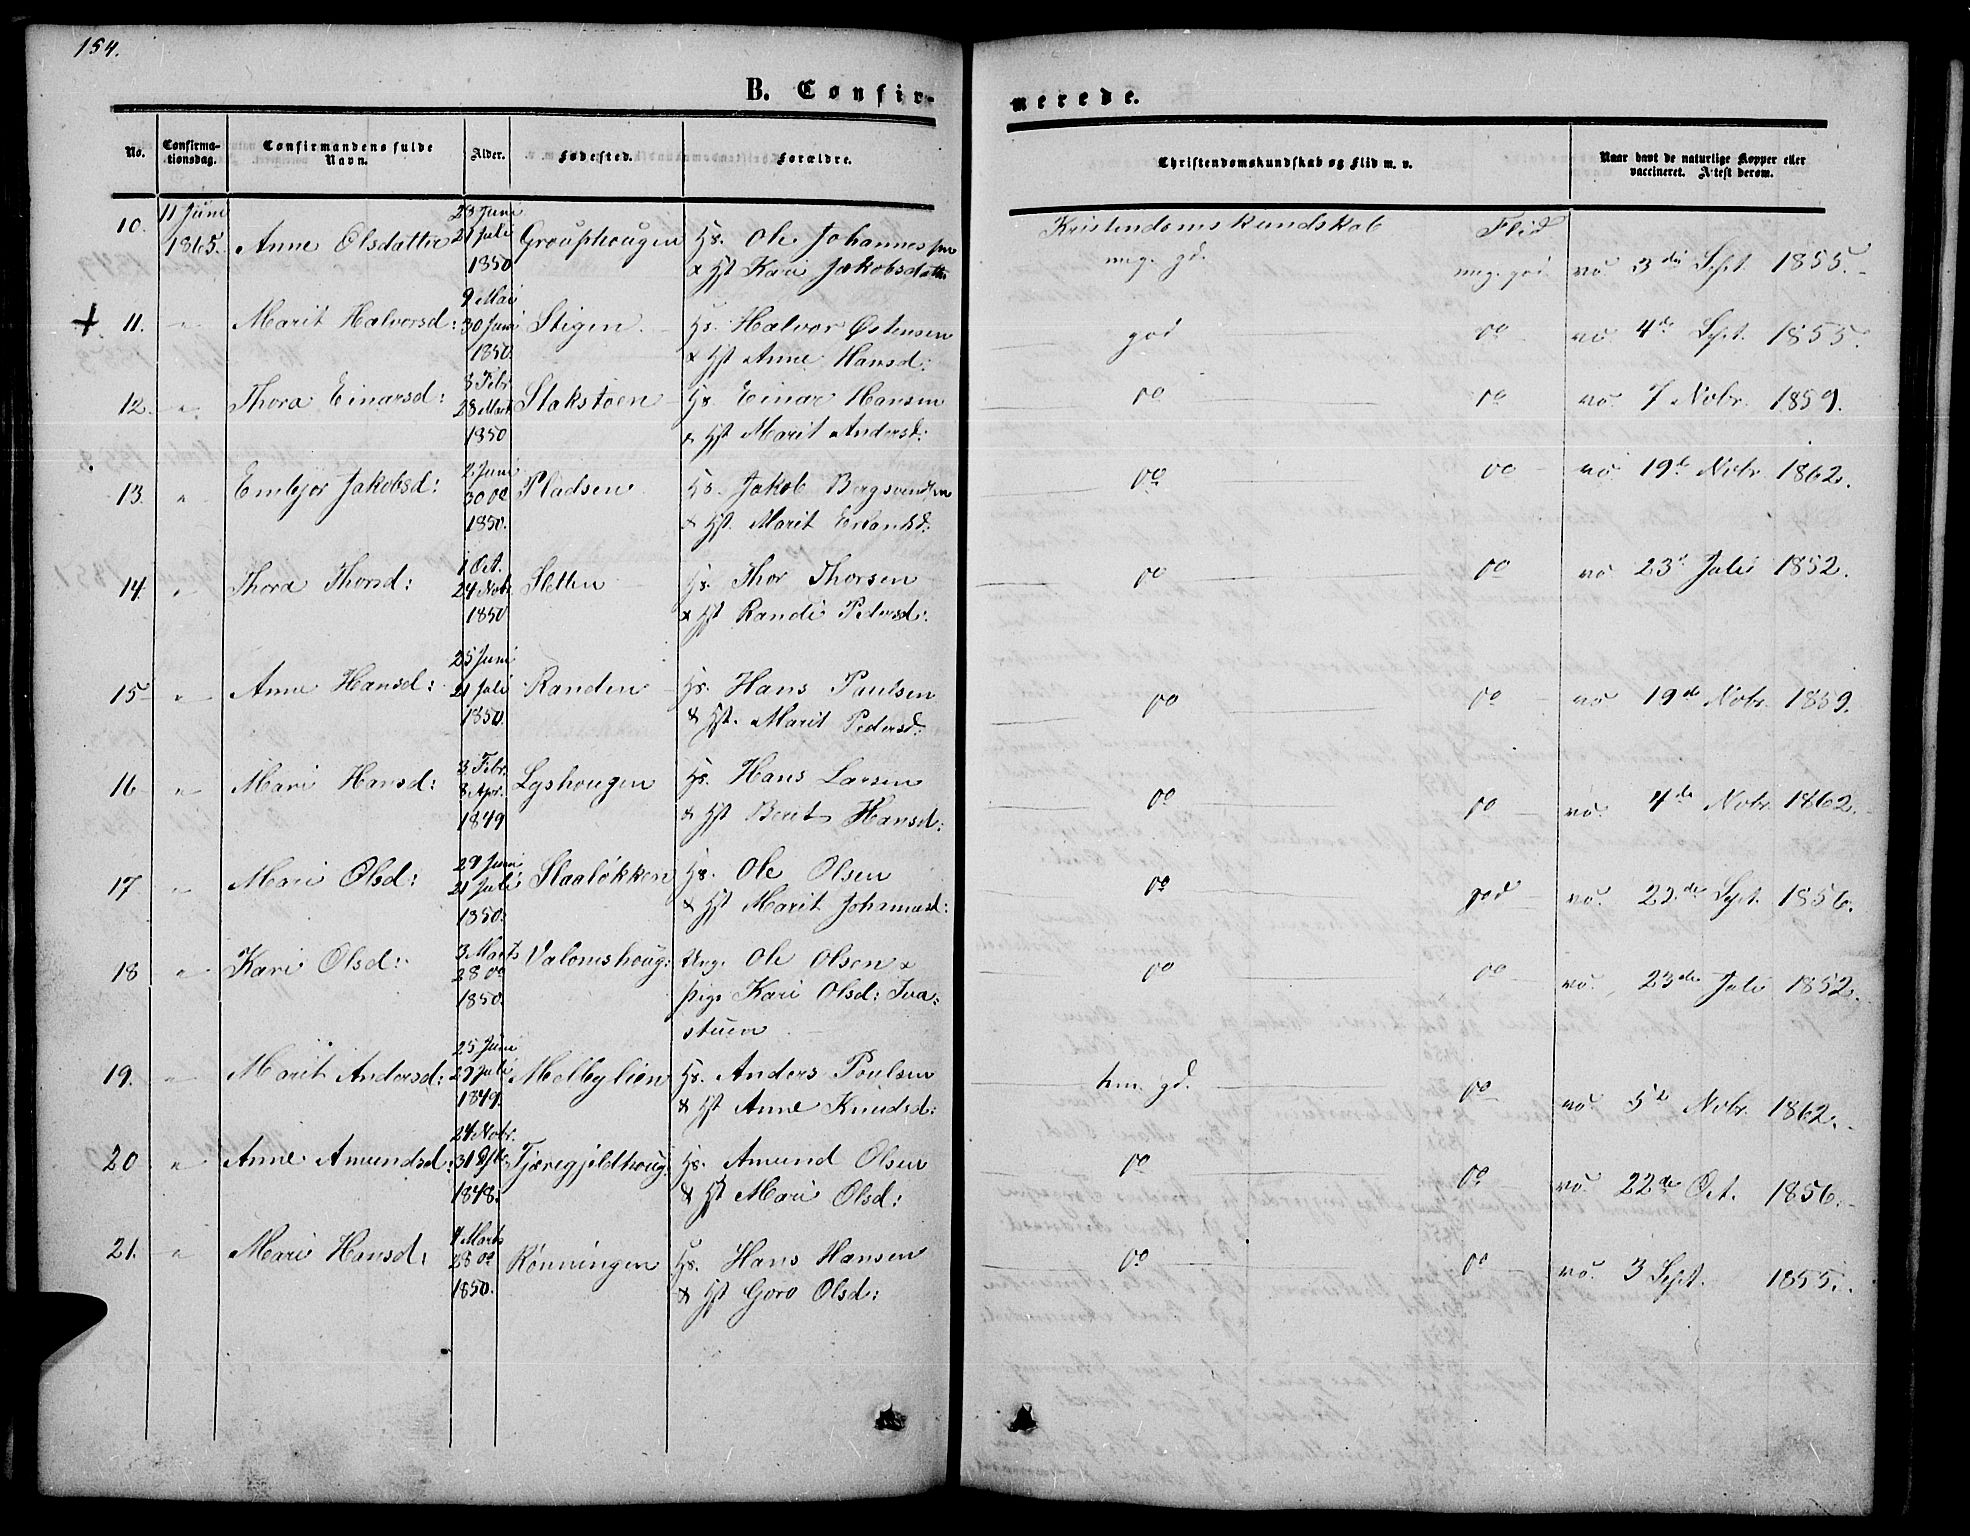 154.
B. Confirmerede.
No. Confirmationsdag. Confirmandens fulde Navn. Alder. Fødested. Forældre. Christendomskundskab og Flid m. v. Naar havt de naturlige Kopper eller vaccineret. Attest derom.
Kristendomskundskab Flid
10. 11 Juni 1865. Anne Olsdatter 23 Juni 21 Juli 1850 Graupshougen Hs. Ole Johannessen & Hst Kari Jakobsdatter meg. gd. meg. god vo. 3die Sept. 1855.
11. " Marit Halvorsd: 9 Mai 30 Juni 1850. Stigen Hs. Halvor Østensen & Hst Anne Hansd: god do vo. 4de Sept. 1855.
12. " Thora Einarsd: 8 Febr 28 Marts 1850 Slakstøen Hs. Einar Hansen & Hst Marit Andersd: do do vo. 7 Nobr. 1859.
13. " Embjør Jakobsd: 2 Juni 30 do 1850. Pladsen Hs. Jakob Bergsvendsen & Hst. Marit Erlandsd: do do vo. 19de Nobr. 1862.
14. " Thora Thorsd: 1 Oct. 24 Nobr. 1850 Sletten Hs. Thor Thorsen & Hst Randi Pedersd: do do vo. 23de Juli 1852.
15 " Anne Hansd: 25 Juni 21 Juli 1850. Randen Hs. Hans Paulsen & Hst. Marit Pedersd: do do vo 19de Nobr. 1859.
16 " Mari Hansd: 3 Febr. 8 Apr. 1849 Lyshougen Hs. Hans Larsen & Hst Berit Hansd: do do vo. 4de Nobr 1862.
17 " Mari Olsd: 29 Juni 21 Juli 1850. Slaaløkken Hs. Ole Olsen & Hst Marit Johannesd: do god vo. 22de Sept. 1856.
18 " Kari Olsd: 3 Marts 28 do 1850. Valomshoug: Ung. Ole Olsen & Pige Kari Olsd: Ivastuen do do vo. 23de Juli 1852.
19. " Marit Andersd: 25 Juni 29 Juli 1849. Melbylien Hs. Anders Poulsen & Hst Anne Knudsd: tem. gd. do vo. 5te Nobr. 1862.
20 " Anne Amundsd: 24 Nobr. 31 Dbr. 1848. Tjæregjeldhoug: Hs. Amund Olsen & Hst Mari Olsd: do do vo. 22de Oct. 1856.
21. " Mari Hansd: 4 Marts 28 do 1850. Rønningen Hs. Hans Hansen & Hst Goro Olsd: do do vo. 3 Sept. 1855.